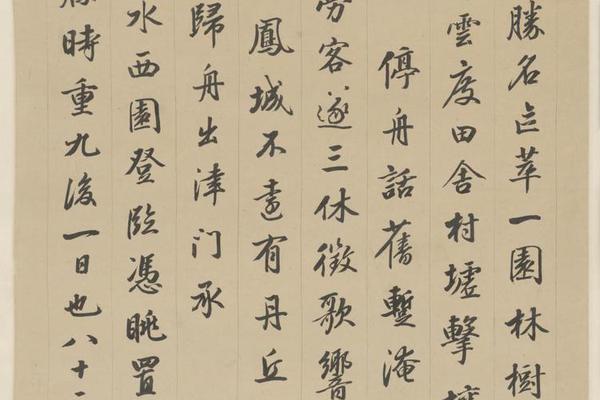 勝名占萃一園林樹
雲度田舍村墟擊
停舟話舊暫淹
客遂三休徵歌響
鳳城不遠有丹丘
歸舟出津門承
水西園登臨憑眺置
時重九後一日也八十